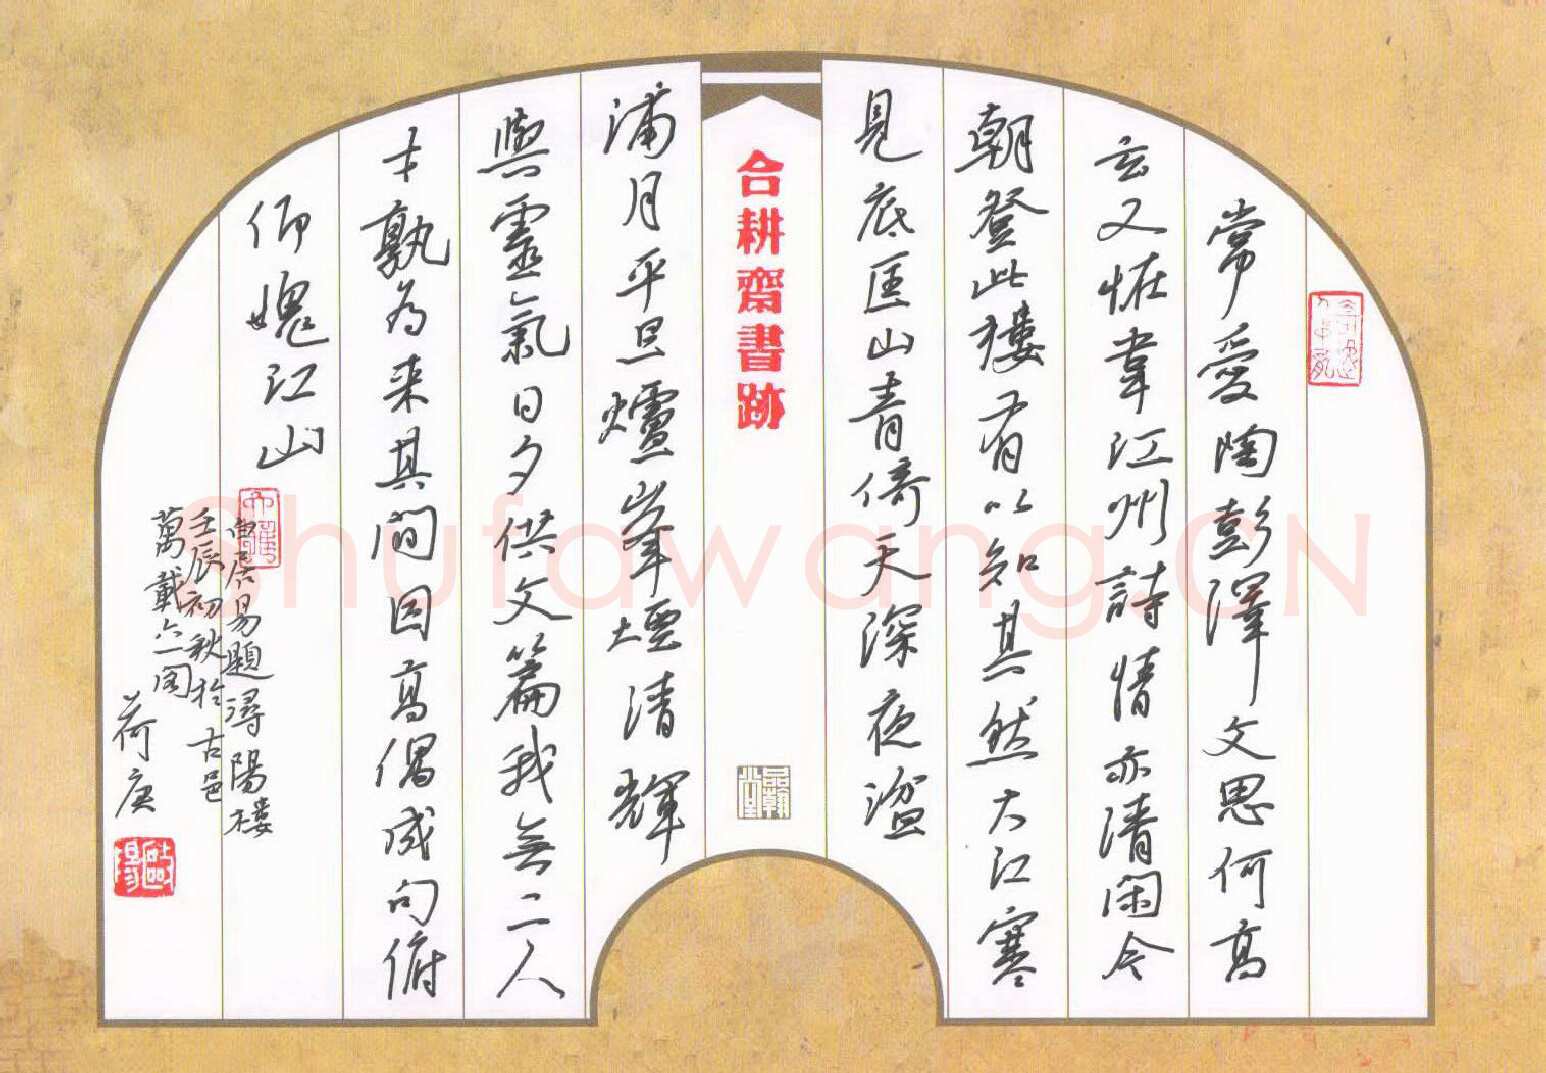 常愛陶彭澤文思何高
玄又恠韋江州詩情亦清閑今
朝登此樓有以知其然大江寒
見底匡山青倚天深夜湓
合耕齋書跡
品翰堂
浦月平旦爐峯煙清輝
與靈氣日夕供文篇我無二人
才孰为来其間因高偶成句俯
仰愧江山
白居易題潯陽樓
壬辰初秋於古邑
萬載六阁
荷庚
Shufawang.CN